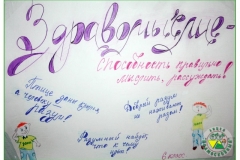 Здравомыслие-
способность правильно
мыслить, рассуждать!
Птице даны крылья,
а человеку
разум!
Добрый разум
не наживёшь
разом!
Разумный найдёт,
что к чему
идёт!
6 класс